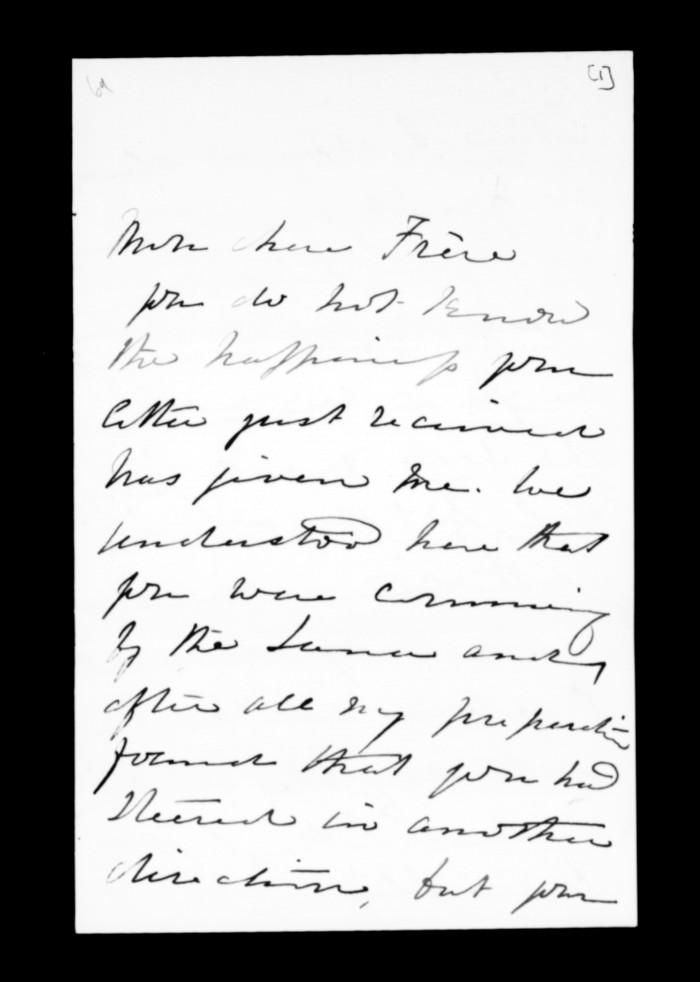 [1]
Mon chere Frère
you do not know
the happiness your
letter just received
has given me. We
understood here that
you were comming
by the Luna and
after all my preparation
found that you had
steered in another
direction, but your